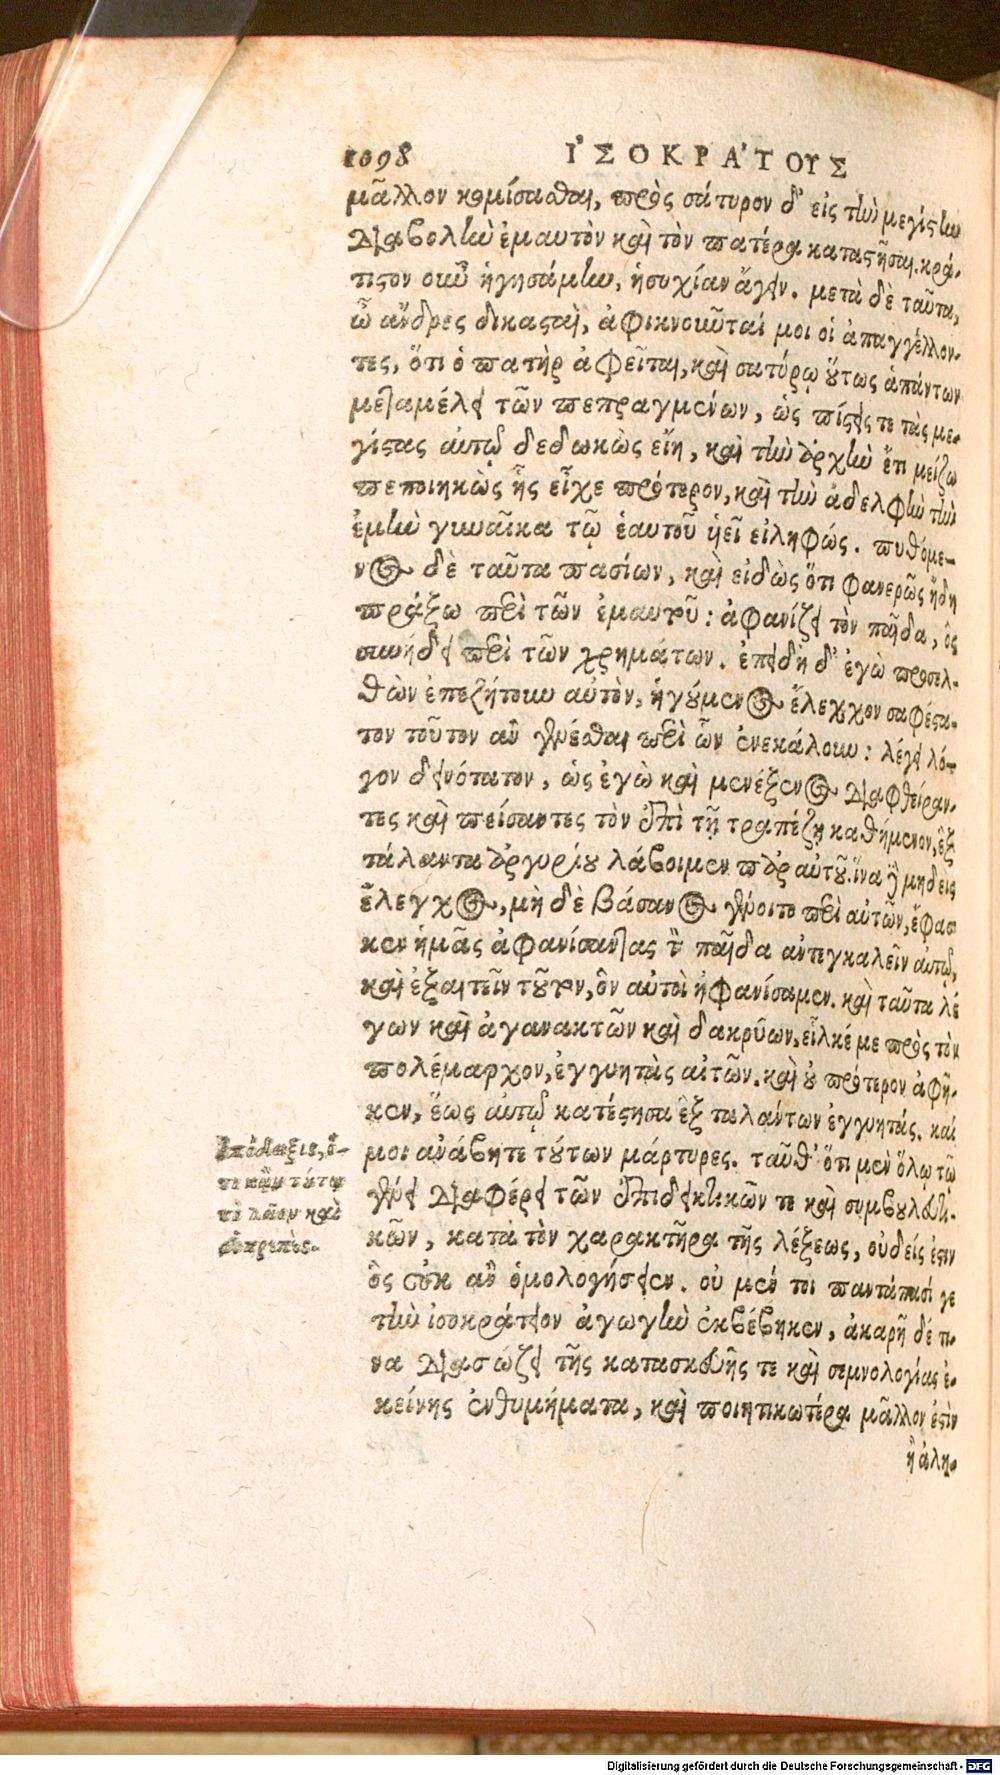 1098 ἸΣΟΚΡΆΤΟΥΣ
μᾶλλον κομίσασθαι, πρὸς σάτυρον δ' εἰς τὴν μεγίστην
διαβολὴν ἐμαυτὸν καὶ τὸν πατέρα καταστῆσαι. κρά-
τιστον οὖν ἡγησάμην, ἡσυχίαν ἄγειν. μετὰ δὲ ταῦτα,
ὦ ἄνδρες δικασταὶ, ἀφικνοῦνταί μοι οἱ ἀπαγγέλλον-
τες, ὅτι ὁ πατὴρ ἀφεῖται, καὶ σατύρῳ οὕτως ἁπάντων
μεταμέλει τῶν πεπραγμένων, ὡς πίστεις τε τὰς με-
γίστας αὐτῷ δεδωκὼς εἴη, καὶ τὴν ἀρχὴν ἔτι μείζω
πεποιηκὼς ἧς εἶχε πρότερον, καὶ τὴν ἀδελφὴν τὴν
ἐμὴν γυναῖκα τῷ ἑαυτοῦ ὑεῖ εἰληφώς. πυθόμε-
νος δὲ ταῦτα πασίων, καὶ εἰδὼς ὅτι φανερῶς ἤδη
πράξω περὶ τῶν ἐμαυτοῦ: ἀφανίζει τὸν παῖδα, ὃς
συνῄδει περὶ τῶν χρημάτων. ἐπειδὴ δ' ἐγὼ προσελ-
θὼν ἐπεζήτουν αὐτὸν, ἡγούμενος ἔλεγχον σαφέστα-
τον τοῦτον ἂν γενέσθαι περὶ ὧν ἐνεκάλουν: λέγει λό-
γον δεινότατον, ὡς ἐγὼ καὶ μενέξενος διαφθείραν-
τες καὶ πείσαντες τὸν ἐπὶ τῇ τραπέζῃ καθήμενον, ἓξ
τάλαντα ἀργυρίου λάβοιμεν παρ' αὐτοῦ. ἵνα δὲ μηδεὶς
ἔλεγχος, μὴ δὲ βάσανος γένοιτο περὶ αὐτῶν, ἔφασ
κεν ἡμᾶς ἀφανίσαντας τὸν παῖδα ἀντεγκαλεῖν αὐτῷ,
καὶ ἐξαιτεῖν τοῦτον, ὃν αὐτοὶ ἠφανίσαμεν. καὶ ταῦτα λέ
γων καὶ ἀγανακτῶν καὶ δακρύων, εἷλκέ με πρὸς τὸν
πολέμαρχον, ἐγγυητὰς αἰτῶν. καὶ οὐ πρότερον ἀφῆ-
κεν, ἕως αὐτῷ κατέστησα ἓξ ταλάντων ἐγγυητάς. καί
μοι ἀνάβητε τούτων μάρτυρες. ταῦθ' ὅτι μὲν ὅλῳ τῷ
γένει διαφέρει τῶν ἐπιδεικτικῶν τε καὶ συμβουλευτι-
κῶν, κατὰ τὸν χαρακτῆρα τῆς λέξεως, οὐδείς ἐστιν
ὃς οὐκ ἂν ὁμολογήσειεν. οὐ μέν τοι παντάπασί γε
τὴν ἰσοκράτειον ἀγωγὴν ἐκβέβηκεν, ἀκαρῆ δέ τι-
να διασώζει τῆς κατασκευῆς τε καὶ σεμνολογίας ἐ-
κείνης ἐνθυμήματα, καὶ ποιητικωτέρα μᾶλλον ἐστὶν
ἢ ἀλη-
τὸ καὶ
εὐπρεπὲς.